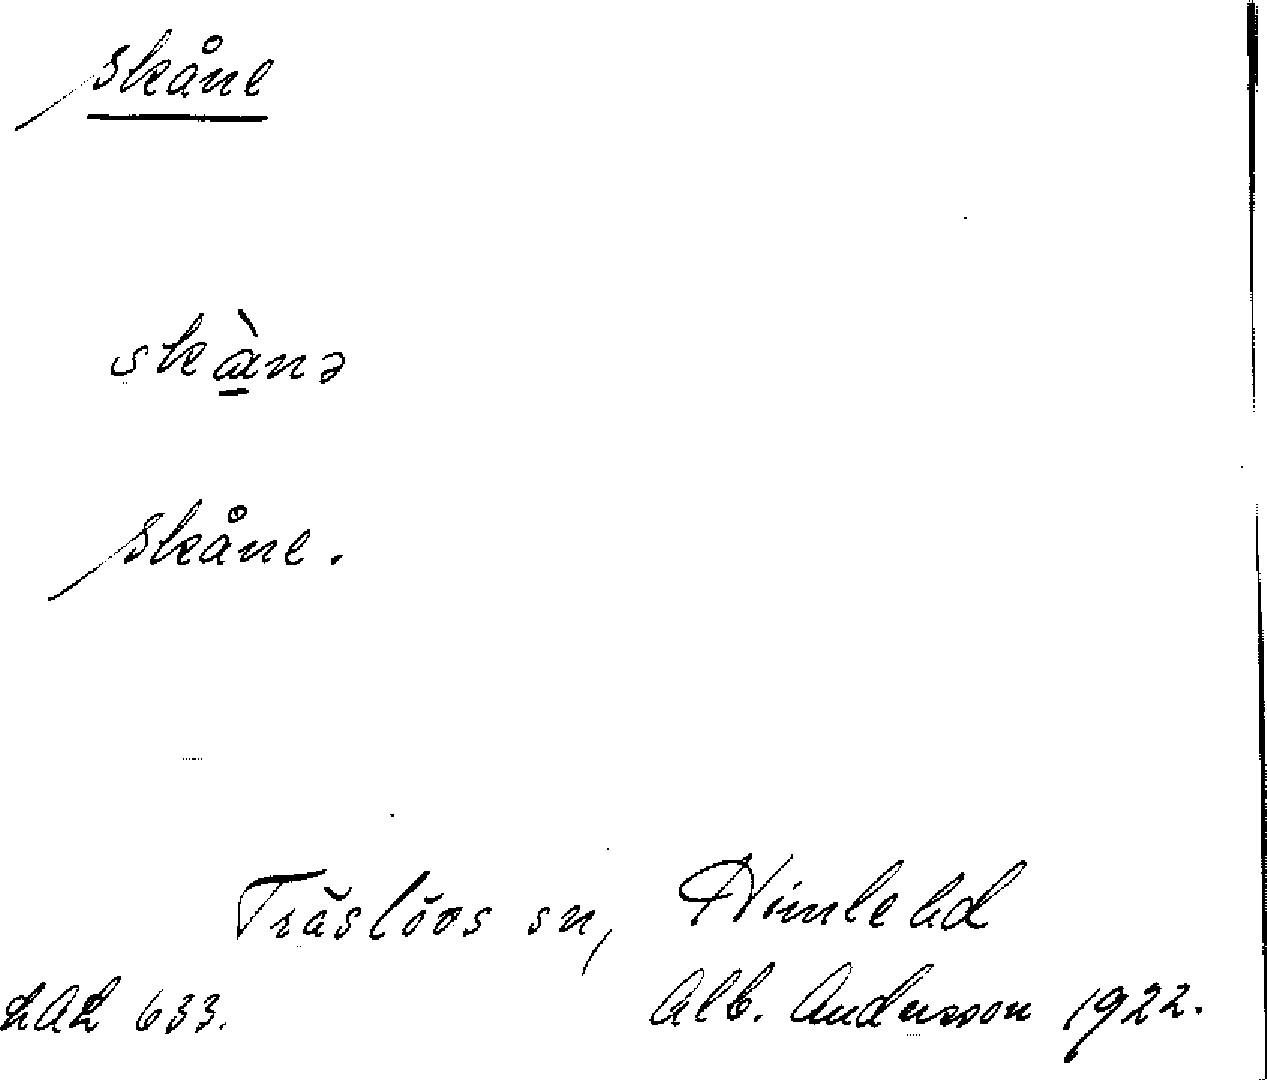 skåne
skànə
skåne.
Träslövs sn, Himle hd
LAL 633. Alb. Andersson 1922.